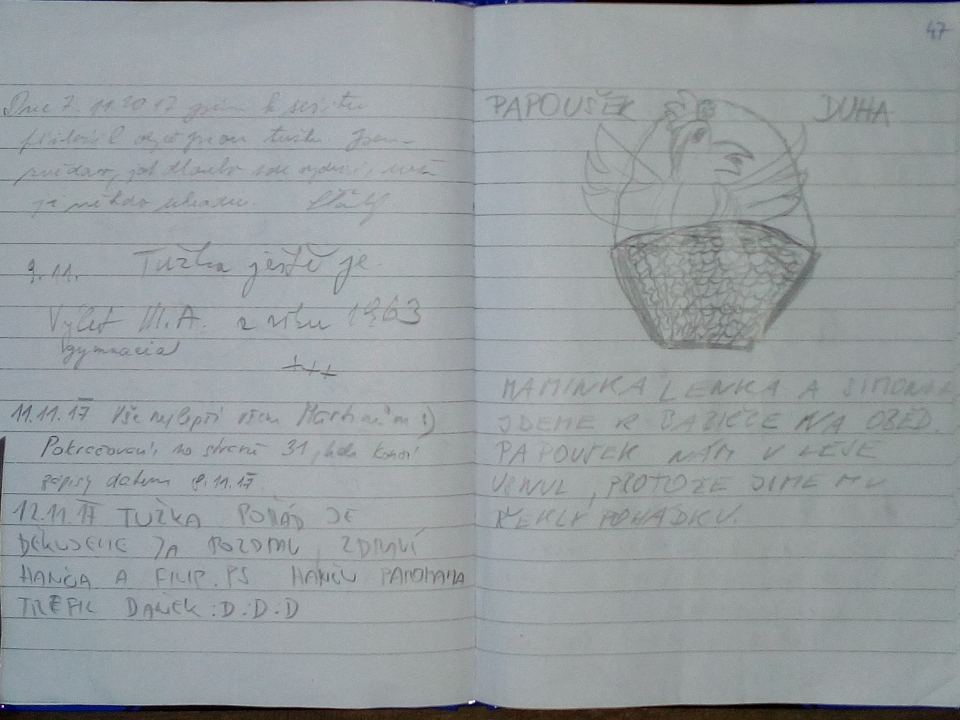 Dne 7.11.2017 jsem k sešitu
přiložil obyčejnou tužku. Jsem
zvědav, jak dlouho zde vydrží, než
je někdo ukradne.
9.11. Tužka ještě je.
Výlet III.A. z roku 1963
gymnacia
+++
11.11.17 Vše nejlepší všem Martinům :)
Pokračování na straně 31, kde končí
zápisy datem 9.11.17
12.11.17 TUŽKA POŘÁD JE
DĚKUJEME ZA POZDRAV, ZDRAVÍ
HANČA A FILIP. PS
TREFIL DANĚK :D:D:D
47
PAPOUŠEK DUHA
MAMINKA LENKA A SIMONKA
JDEME K BABIČCE NA OBĚD.
PAPOUŠEK NÁM V LESE
USNUL, PROTOŽE JSME MU
ŘEKLY POHÁDKU.